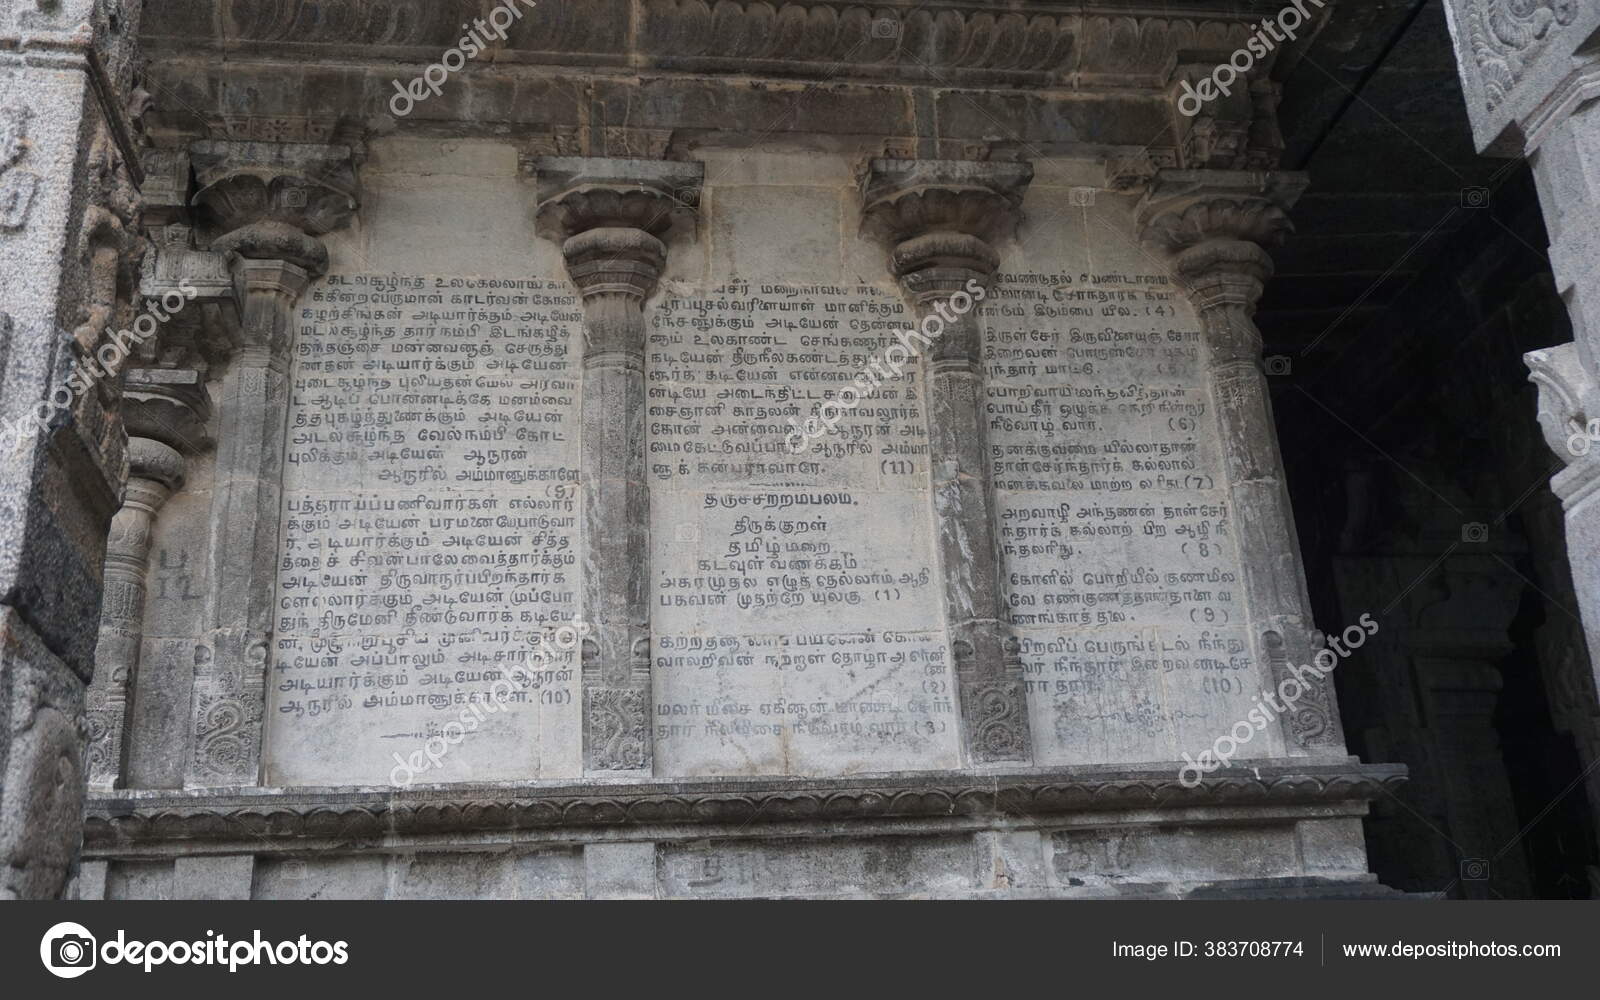 கடலசூழ்ந்த உலகெலலாங் கா
க்கின்றபெருமான் காடர்வன் கோன்
கழற்சிங்கன் அடியார்க்கும் அடியேன்
மடலசூழ்ந்த தார் நம்பி இடங்கழித்
தஞ்சை மன்னவனாஞ் செருத்து
ணைதன் அடியார்க்கும் அடியேன்
புடைசூழ்ந்த புலியதள்மேல் அரவா
ட ஆடிப் பொன்னடிக்கே மனம்வை
த்தபுகழ்த்துணைக்கும் அடியேன்
அடலசூழ்ந்த வேல்நம்பி கோட்
புலிக்கும் அடியேன் ஆரூரன்
ஆரூரில் அம்மானுக்காளே
(9)
பத்தராய்ப்பணிவார்கள் எல்லார்
க்கும் அடியேன் பரமனையேபாடுவா
ர் அடியார்க்கும் அடியேன் சித்த
த்தைச் சிவன்பாலேவைத்தார்க்கும்
அடியேன் திருவாரூர்ப்பிறந்தார்க
ளெல்லார்க்கும் அடியேன் முப்போ
துந் திருமேனி தீண்டுவார்க் கடியே
ன் முழுநீறுபூசிய முனிவர்க்கும்
டியேன் அப்பாலும் அடிசார்ந்தார்
அடியார்க்கும் அடியேன் ஆரூரன்
ஆரூரில் அம்மானுக்காளே. (10)
சீர் மறைநாவல்
மானிக்கும்
நேசனுக்கும் அடியேன் தென்னவ
னாய் உலகாண்ட செங்கணார்க்
கடியேன் திருநீலகண்டத்துப்பாண
னார்க் கடியேன் என்னவனாம் அர
னடியே அடைந்திட்ட சடையன் இ
சைஞானி காதலன் திருநாவலூர்க்
கோன் அன்னவனாம் ஆரூரன் அடி
மைகேட்டுவப்பார் ஆரூரில் அம்மா
னுக் கன்பராவாரே. (11)
திருச்சிற்றம்பலம்.
திருக்குறள்
தமிழ்மறை
கடவுள் வணக்கம்
அகரமுதல எழுத்தெல்லாம் ஆதி
பகவன் முதற்றே யுலகு (1)
கற்றதனா லாய பயனென் கொல்
வாலறிவன் நற்றாள் தொழாஅ
(2)
மலர்மிசை ஏகினான் மாணடி சேர்
தார் நிலமிசை நீடுவாழ் வார் (3)
வேண்டுதல் வேண்டாமை
யிலானடி சேர்ந்தார்க் கியா
ண்டும் இடும்பை யில. (4)
இருள்சேர் இருவினையுஞ் சேரா
இறைவன் பொருள்சேர் புகழ்
புரிந்தார் மாட்டு. (5)
பொறிவாயிலைந்தவித்தான்
பொய்தீர் ஒழுக்க நெறிநின்றார்
நீடுவாழ் வார். (6)
தனக்குவமை யில்லாதான்
தாள்சேர்ந்தார்க் கல்லால்
மனக்கவலை மாற்ற லரிது. (7)
அறவாழி அந்தணன் தாள்சேர்
ந்தார்க் கல்லாற் பிற ஆழி நீ
ந்தலரிது. (8)
கோளில் பொறியில் குணமில
வே எண்குணத்தான்தாளை வ
ணங்காத் தலை. (9)
பிறவிப் பெருங்கடல் நீந்து
வர் நீந்தார் இறைவனடிசே
ரா தார். (10)
depositphotos
Image ID: 383708774
www.depositphotos.com